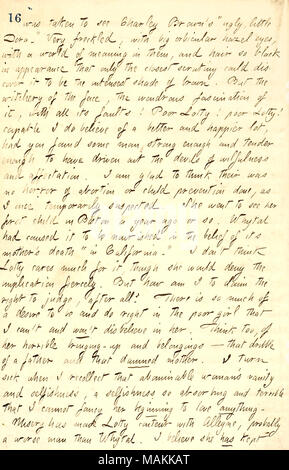 16
was taken to see Charley Brown's "ugly little
Dora." Very freckled, with big orbicular hazel eyes,
with a world of meaning in them, and hair so black
in appearance that only the closest scrutiny could dis
cover it to be the intensest shade of brown. But the
witchery of the face, the wondrous fascination of
it, with all its faults! Poor Lotty! poor Lotty!
capable I do believe of a better and happier lot
had you found some man, strong enough and tender
enough to have driven out the devils of wilfulness
and affectation. I am glad to think there was
no horror of abortion or child prevention done, as
I use temporarily suspected. She went to see her
first child in Boston a year ago or so. Whytal
had caused it to be nourished in the belief of its
mother's death "in California." I don't think
Lotty cares much for it, though she would deny the
implication fiercely. But how am I to claim the
right to judge, after all! There is so much of
a desire to be and do right in the poor girl that
I can't and won't disbelieve in her. Think too, of
her horrible bringing-up and belongings — that
of a father and that damned mother. I turn
sick when I recollect that abominable woman's vanity
and selfishness, a selfishness so absorbing and terrible
that I cannot fancy her beginning to love anything.
Misery has made Lotty content with Alleyne, probably
a worse man than Whytal. I believe she has kept
alamy
MAKKAT